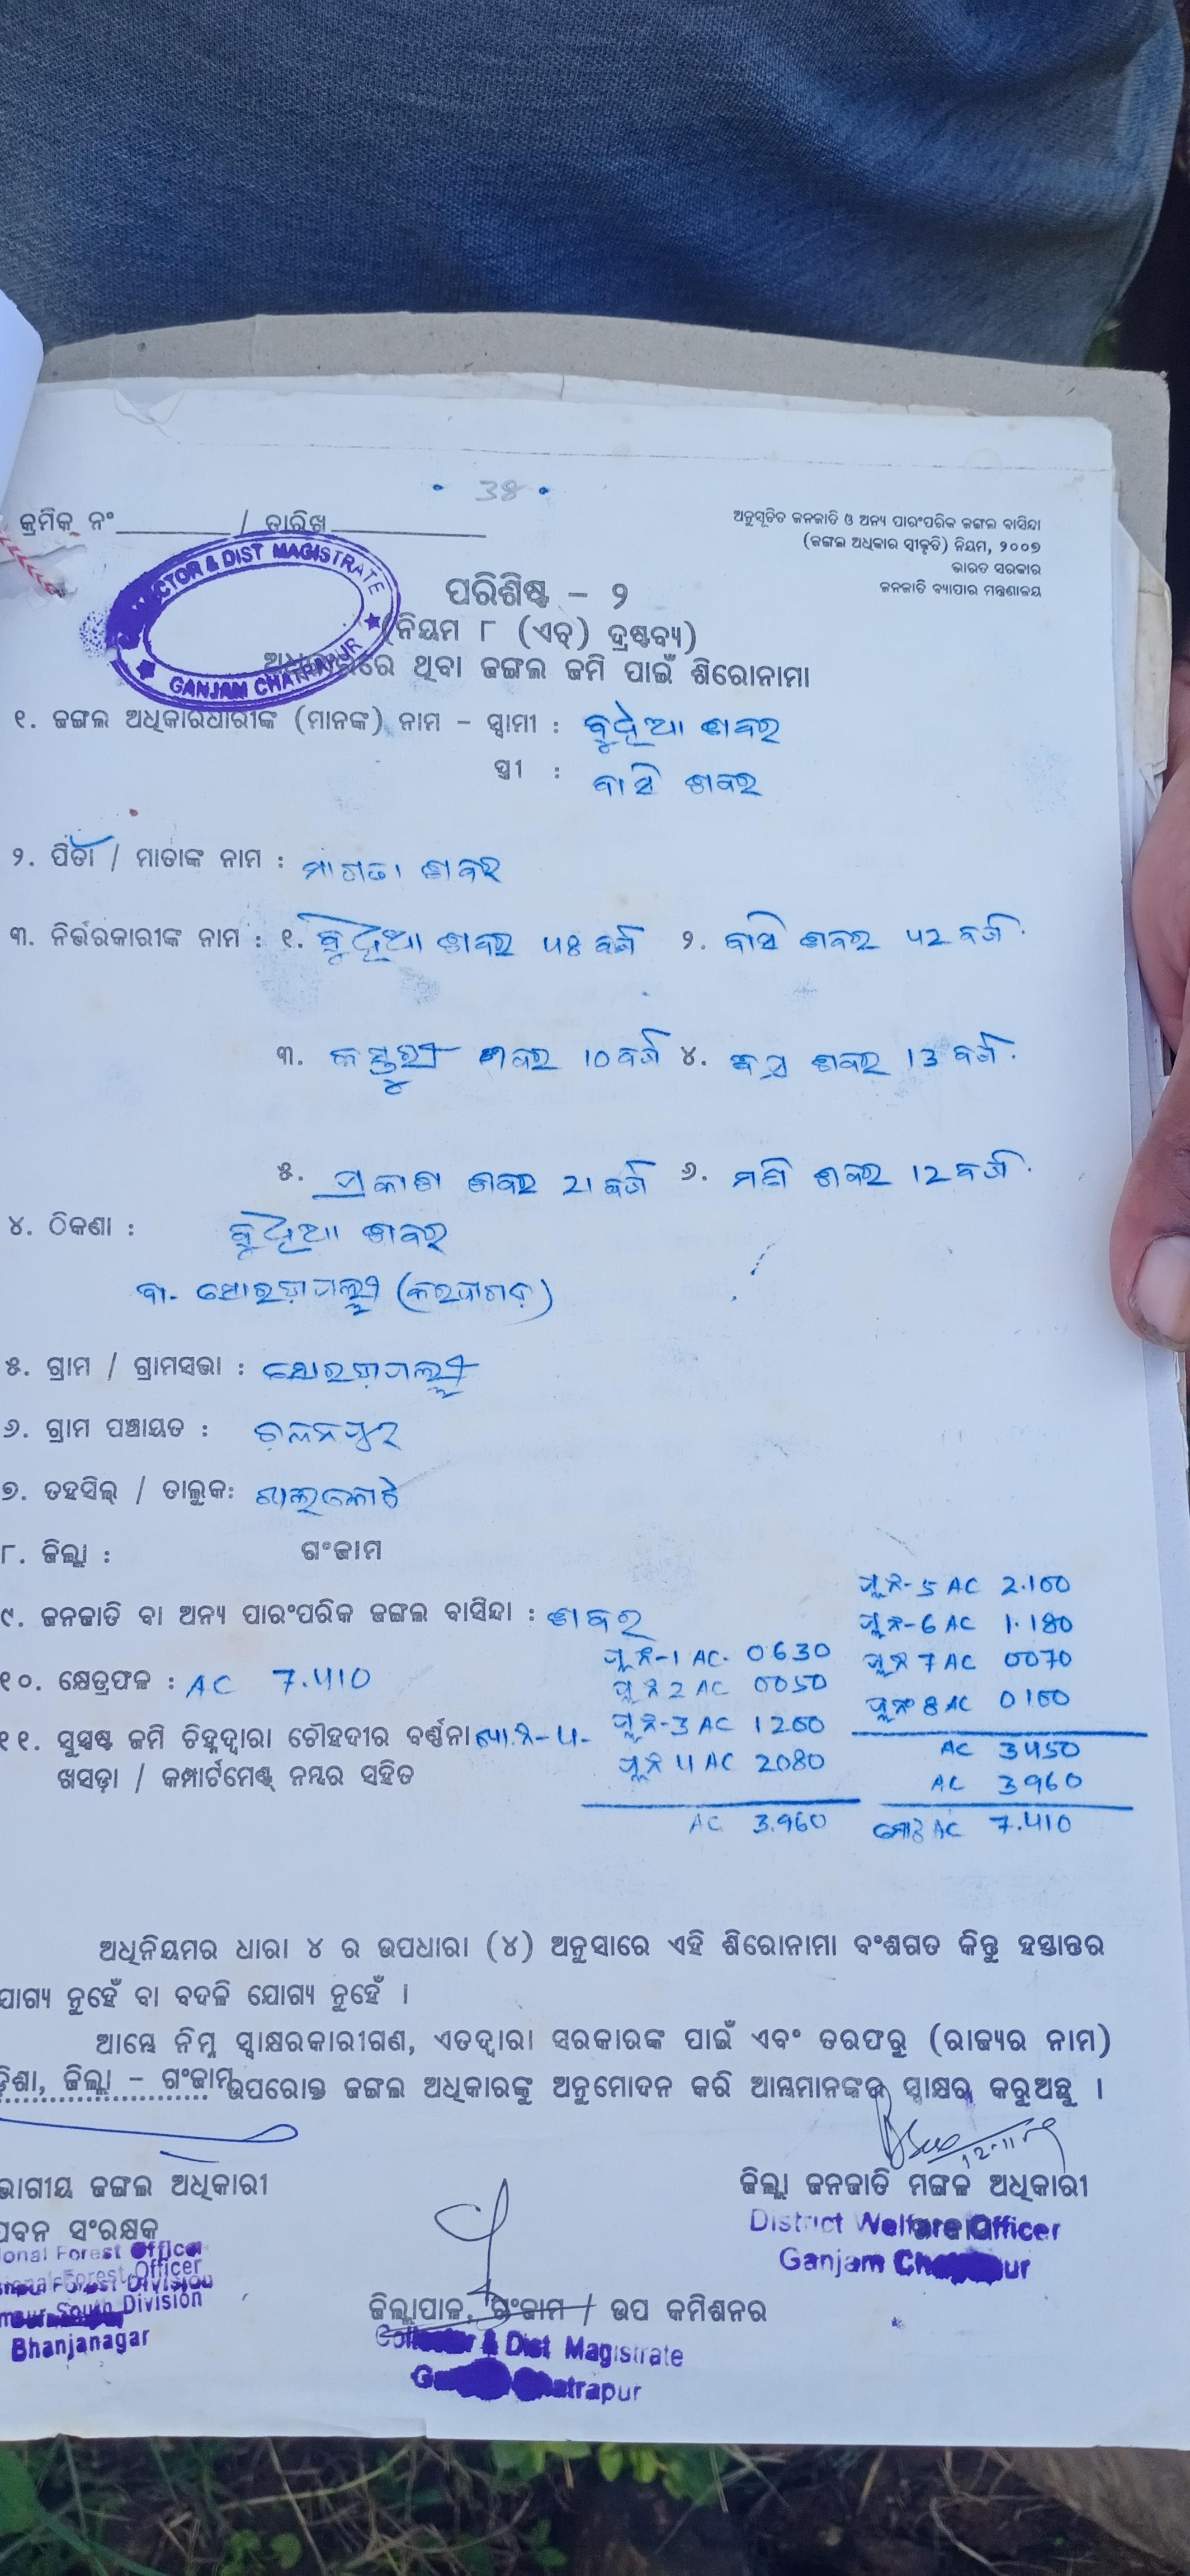 • 34 •
କ୍ରମିକ ନଂ / ତାରିଖ
ଅନୁସୂଚିତ ଜନଜାତି ଓ ଅନ୍ୟ ପାରଂପରିକ ଜଙ୍ଗଲ ବାସିନ୍ଦା
(ଜଙ୍ଗଲ ଅଧିକାର ସ୍ୱୀକୃତି) ନିୟମ, ୨୦୦୭
ଭାରତ ସରକାର
ଜନଜାତି ବ୍ୟାପାର ମନ୍ତ୍ରଣାଳୟ
& DIST MAGISTRATE
GANJAM CHATRAPUR
ପରିଶିଷ୍ଟ – ୨
(ନିୟମ ୮ (ଏଚ୍) ଦ୍ରଷ୍ଟବ୍ୟ)
ଥିବା ଜଙ୍ଗଲ ଜମି ପାଇଁ ଶିରୋନାମା
୧. ଜଙ୍ଗଲ ଅଧିକାରଧାରୀଙ୍କ (ମାନଙ୍କ) ନାମ – ସ୍ୱାମୀ : ବୁଦ୍ଧିଆ ଶବର
ସ୍ତ୍ରୀ : ବାସି ଶବର
୨. ପିତା / ମାତାଙ୍କ ନାମ : ଶବର
୩. ନିର୍ଭରକାରୀଙ୍କ ନାମ : ୧. ବୁଦ୍ଧିଆ ଶବର ବର୍ଷ ୨. ବାସି ଶବର 42 ବର୍ଷ
୩. ଶବର 10 ବର୍ଷ ୪. ଶବର 13 ବର୍ଷ
୫. ପ୍ରକାଶ ଶବର 21 ବର୍ଷ ୬. ମଣି ଶବର 12 ବର୍ଷ
୪. ଠିକଣା : ବୁଦ୍ଧିଆ ଶବର
୫. ଗ୍ରାମ / ଗ୍ରାମସଭା :
୬. ଗ୍ରାମ ପଞ୍ଚାୟତ :
୭. ତହସିଲ୍ / ତାଲୁକ:
୮. ଜିଲ୍ଲା : ଗଂଜାମ
୯. ଜନଜାତି ବା ଅନ୍ୟ ପାରଂପରିକ ଜଙ୍ଗଲ ବାସିନ୍ଦା : ଶବର
୧୦. କ୍ଷେତ୍ରଫଳ : AC 7.410
୧୧. ସୁସ୍ପଷ୍ଟ ଜମି ଚିହ୍ନଦ୍ୱାରା ଚୌହଦୀର ବର୍ଣ୍ଣନା
ଖସଡ଼ା / କମ୍ପାର୍ଟମେଣ୍ଟ୍ ନମ୍ବର ସହିତ
ପ୍ଲ ନ-1 AC. 0630
ପ୍ଲ ନ 2 AC 0050
ପ୍ଲ ନ-3 AC 1200
ପ୍ଲ ନ 4 AC 2080
AC 3.960
ପ୍ଲ ନ-5 AC 2.100
ପ୍ଲ ନ-6 AC 1.180
ପ୍ଲ ନ 7 AC 0070
ପ୍ଲ ନ 8 AC 0100
AC 3450
AC 3960
ମୋଟ AC 7.410
ଅଧିନିୟମର ଧାରା ୪ ର ଉପଧାରା (୪) ଅନୁସାରେ ଏହି ଶିରୋନାମା ବଂଶଗତ କିନ୍ତୁ ହସ୍ତାନ୍ତର
ଯୋଗ୍ୟ ନୁହେଁ ବା ବଦଳି ଯୋଗ୍ୟ ନୁହେଁ ।
ଆମ୍ଭେ ନିମ୍ନ ସ୍ୱାକ୍ଷରକାରୀଗଣ, ଏତଦ୍ୱାରା ସରକାରଙ୍କ ପାଇଁ ଏବଂ ତରଫରୁ (ରାଜ୍ୟର ନାମ)
ଡ଼ିଶା, ଜିଲ୍ଲା – ଗଂଜାମ ଉପରୋକ୍ତ ଜଙ୍ଗଲ ଅଧିକାରଙ୍କୁ ଅନୁମୋଦନ କରି ଆମ୍ଭମାନଙ୍କର ସ୍ୱାକ୍ଷର କରୁଅଛୁ ।
ଭାଗୀୟ ଜଙ୍ଗଲ ଅଧିକାରୀ
ପବନ ସଂରକ୍ଷକ
ional Forest Officer
South Division
Bhanjanagar
ଜିଲ୍ଲା ଜନଜାତି ମଙ୍ଗଳ ଅଧିକାରୀ
District Welfare Officer
Ganjam
ଜିଲ୍ଲାପାଳ, ଗଂଜାମ / ଉପ କମିଶନର
Collector & Dist Magistrate